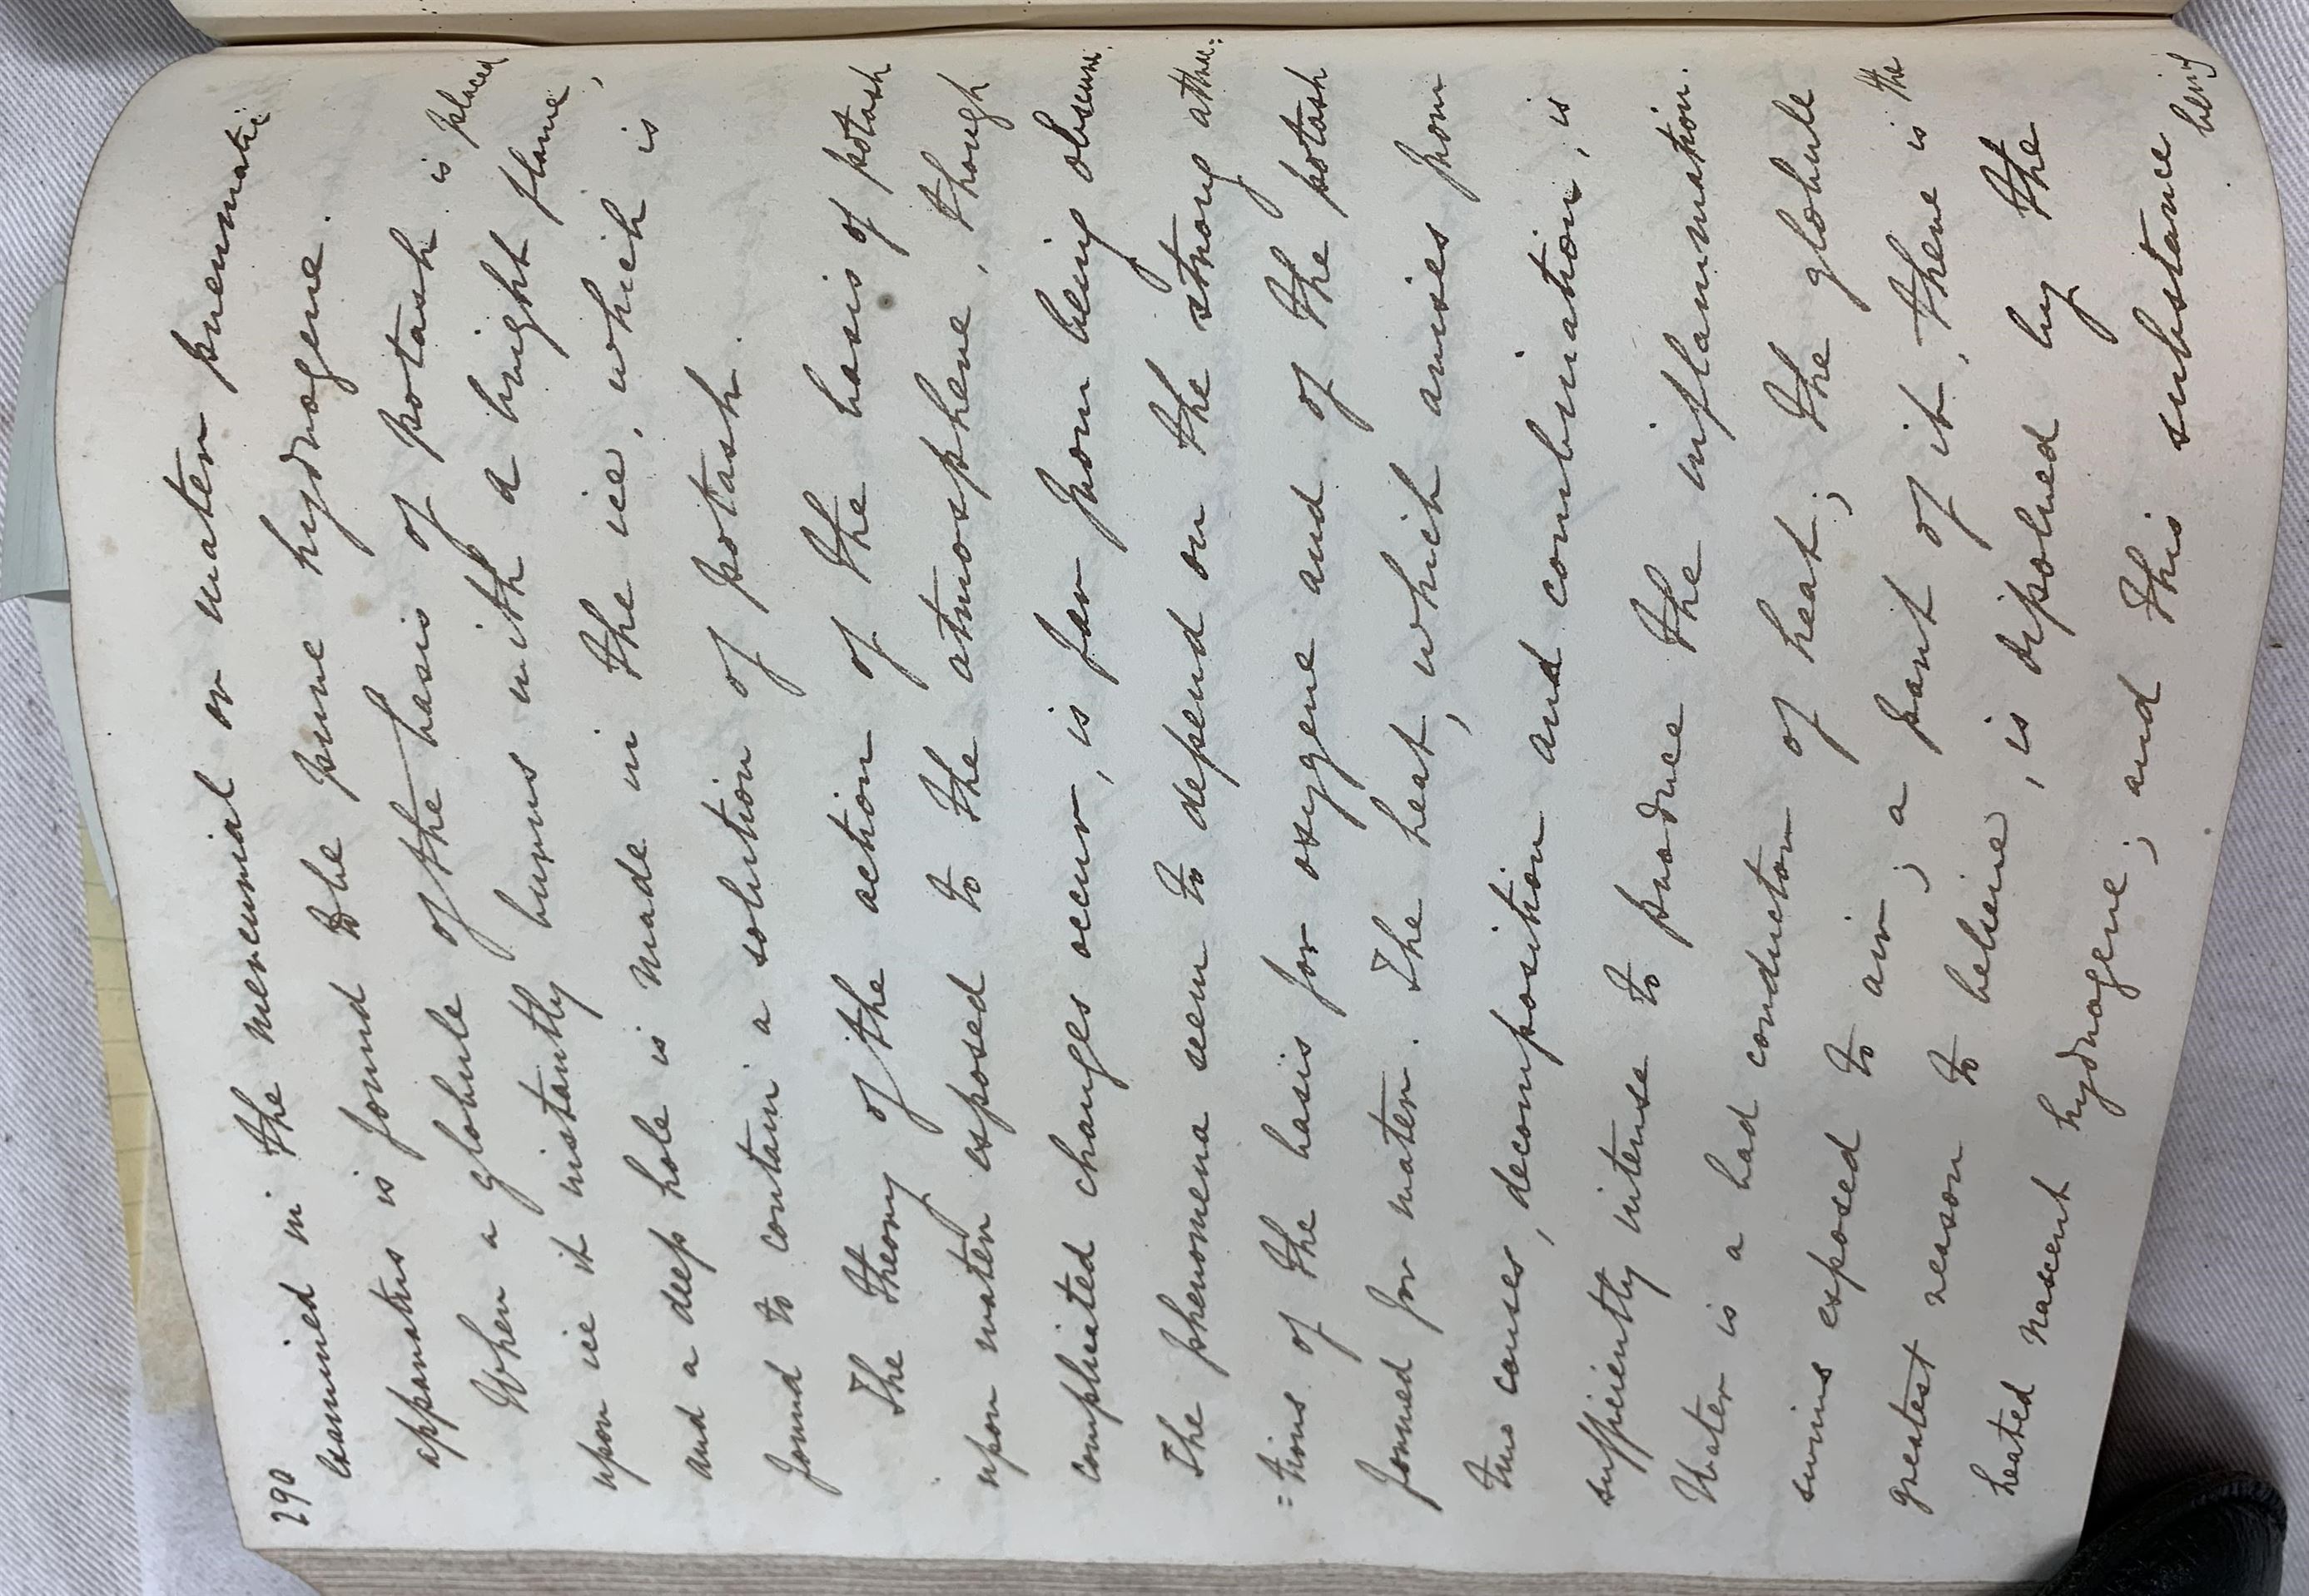 290
examined in the mercurial or water pneumatic
apparatus is found to be pure hydrogene.
When a globule of the basis of potash is placed
upon ice it instantly burns with a bright flame,
and a deep hole is made in the ice, which is
found to contain a solution of potash.
The theory of the action of the basis of potash
upon water exposed to the atmosphere, though
complicated changes occur, is far from being obscure.
The phenomena seem to depend on the strong attrac:
:tions of the basis for oxygene and of the potash
formed for water. The heat, which arises from
two causes, decomposition and combination, is
sufficiently intense to produce the inflammation.
Water is a bad conductor of heat; the globule
swims exposed to air; a part of it, there is the
greatest reason to believe, is dissolved by the
heated nascent hydrogene; and this substance being